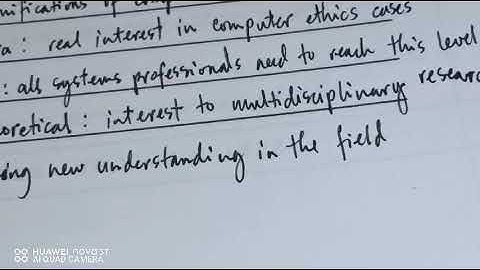 ra: real interest in computer ethics cases
: all systems professionals need to reach this level
oretical: interest to multidisciplinary resear
ing new understanding in the field
HUAWEI nova 3T
AI QUAD CAMERA